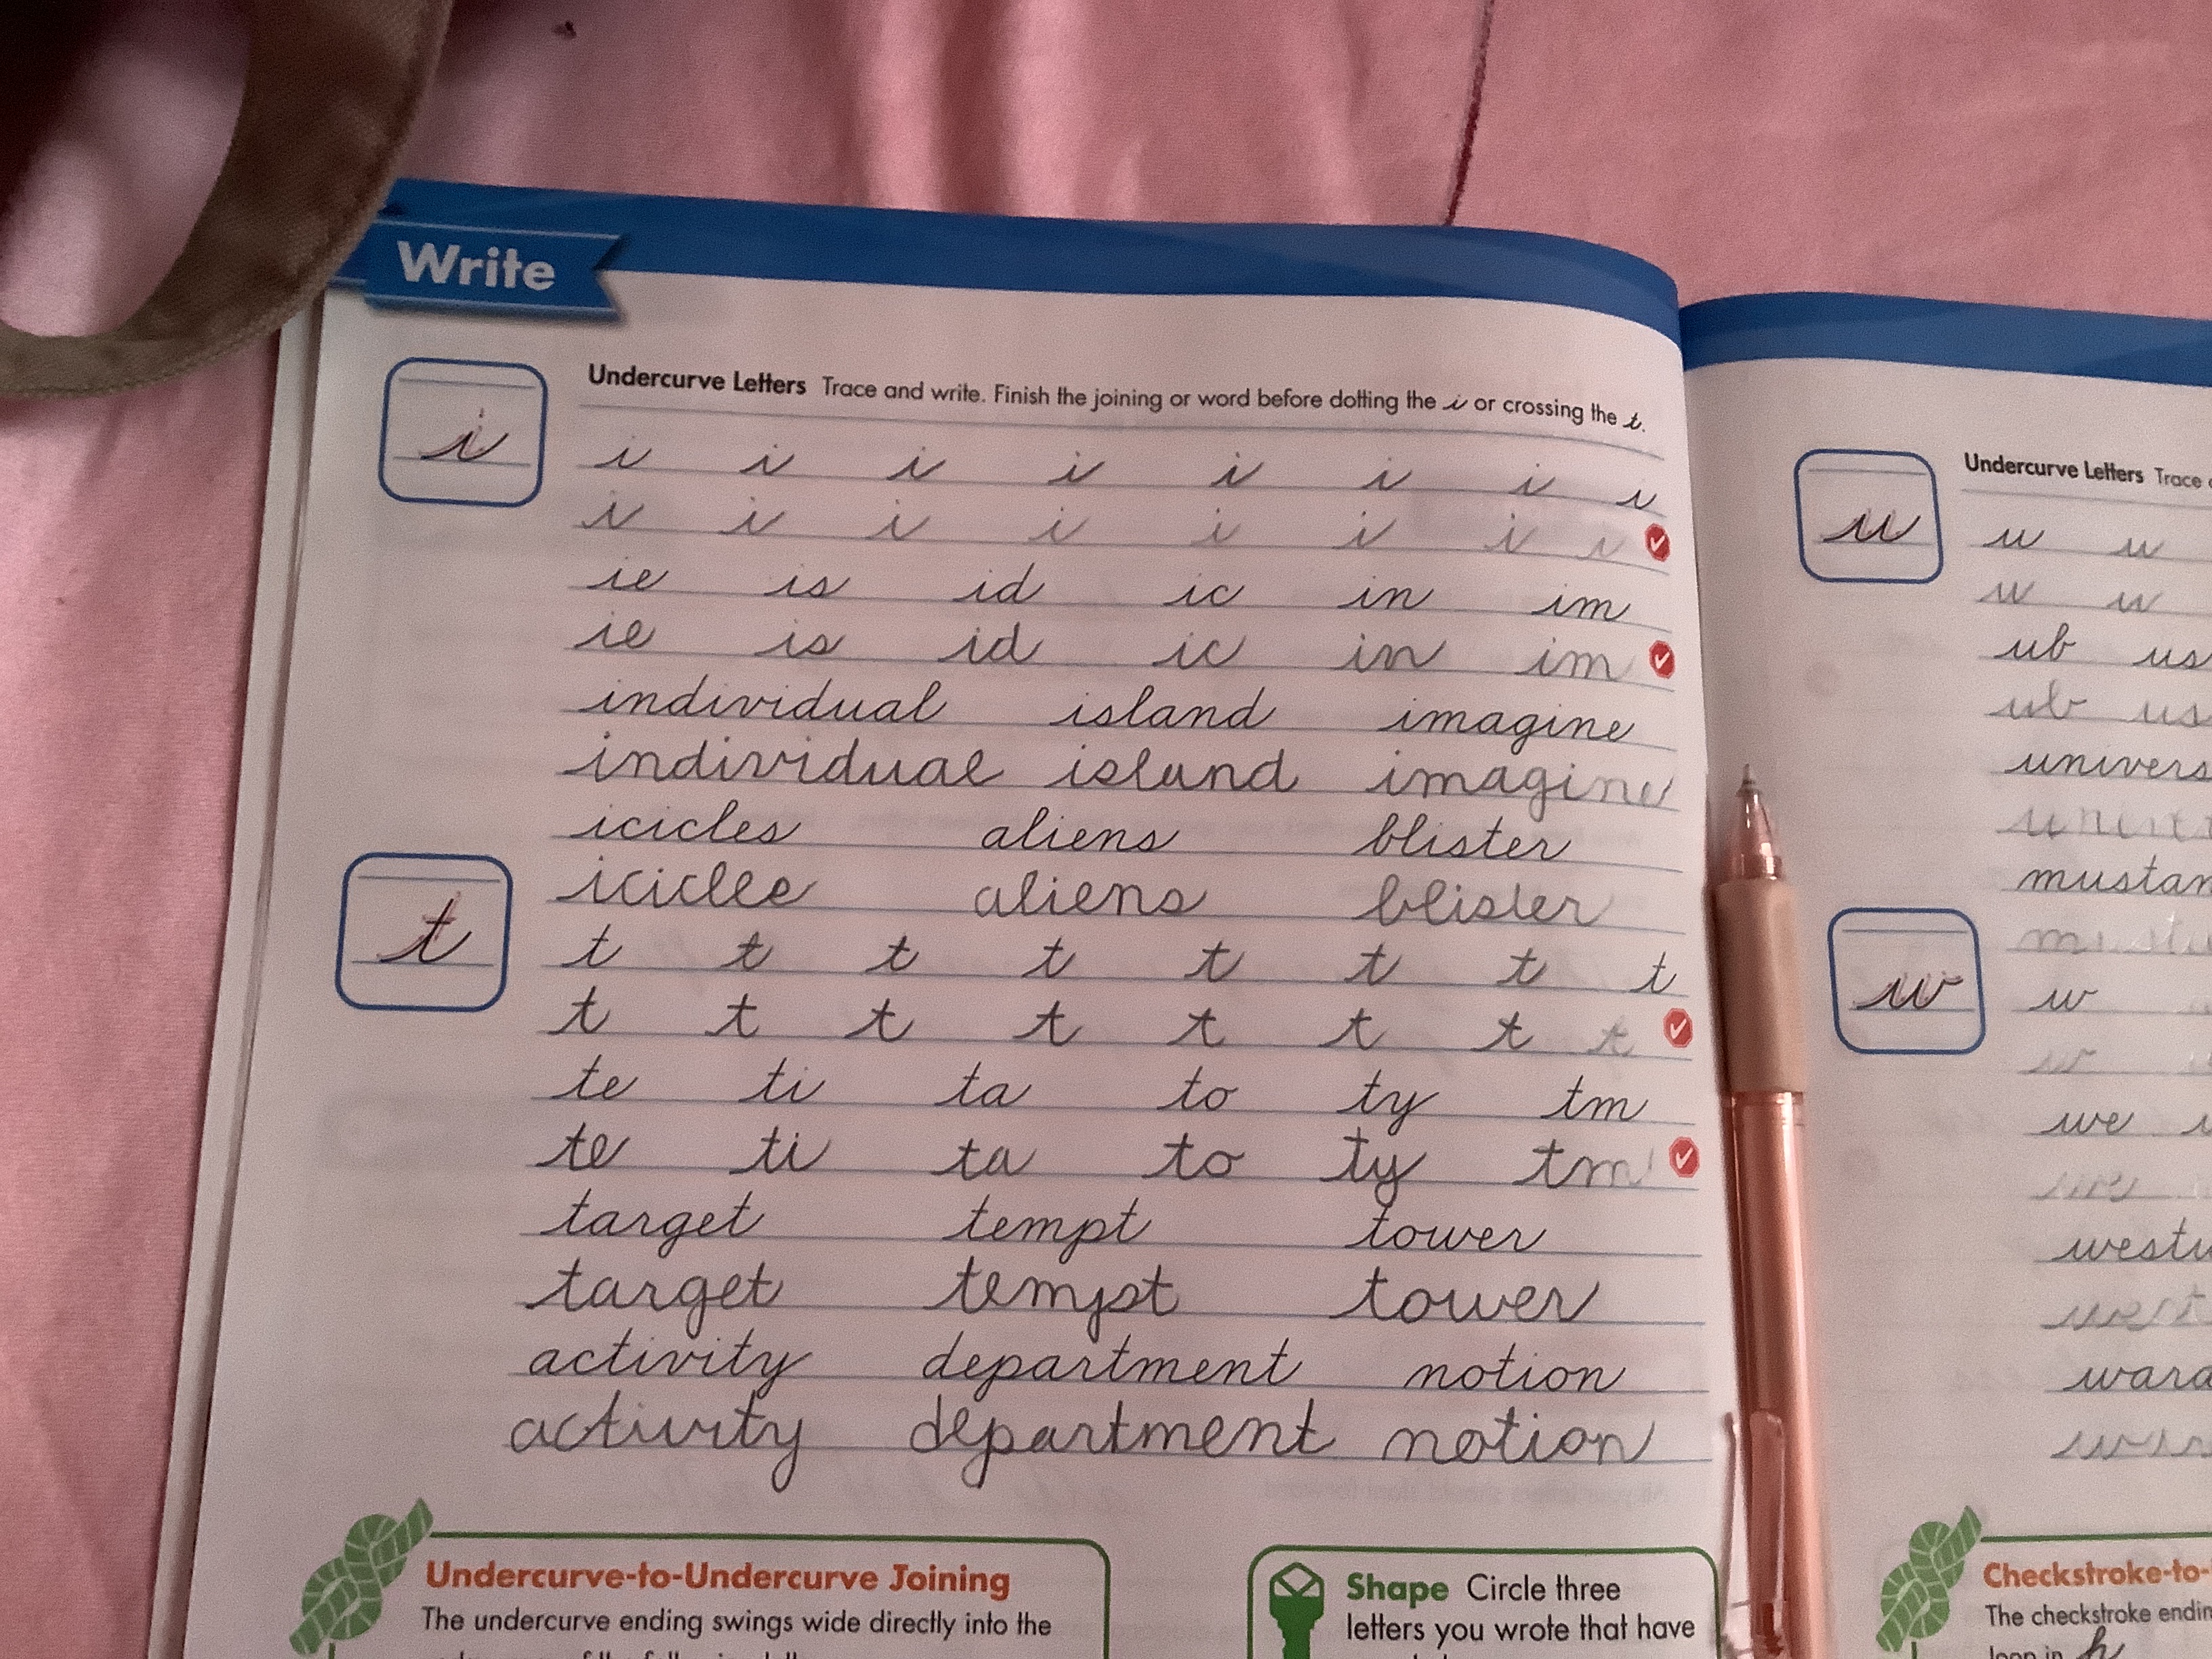 Write
i
Undercurve Letters Trace and write. Finish the joining or word before dotting the i or crossing the t.
i i i i i i i i
i i i i i i i i
ie is id ic in im
ie is id ic in im
individual island imagine
individual island imagine
icicles aliens blister
iciclee aliens blister
t
t t t t t t t t
t t t t t t t t
te ti ta to ty tm
te ti ta to ty tm
target tempt tower
target tempt tower
activity department notion
activity department notion
Undercurve-to-Undercurve Joining
The undercurve ending swings wide directly into the
Shape Circle three
letters you wrote that have
u
Undercurve Letters Trace
u u
u u
ub us
ub us
univers
mustan
w
w
w
we
we
westw
ward
Checkstroke-to-
The checkstroke endin
loop in h